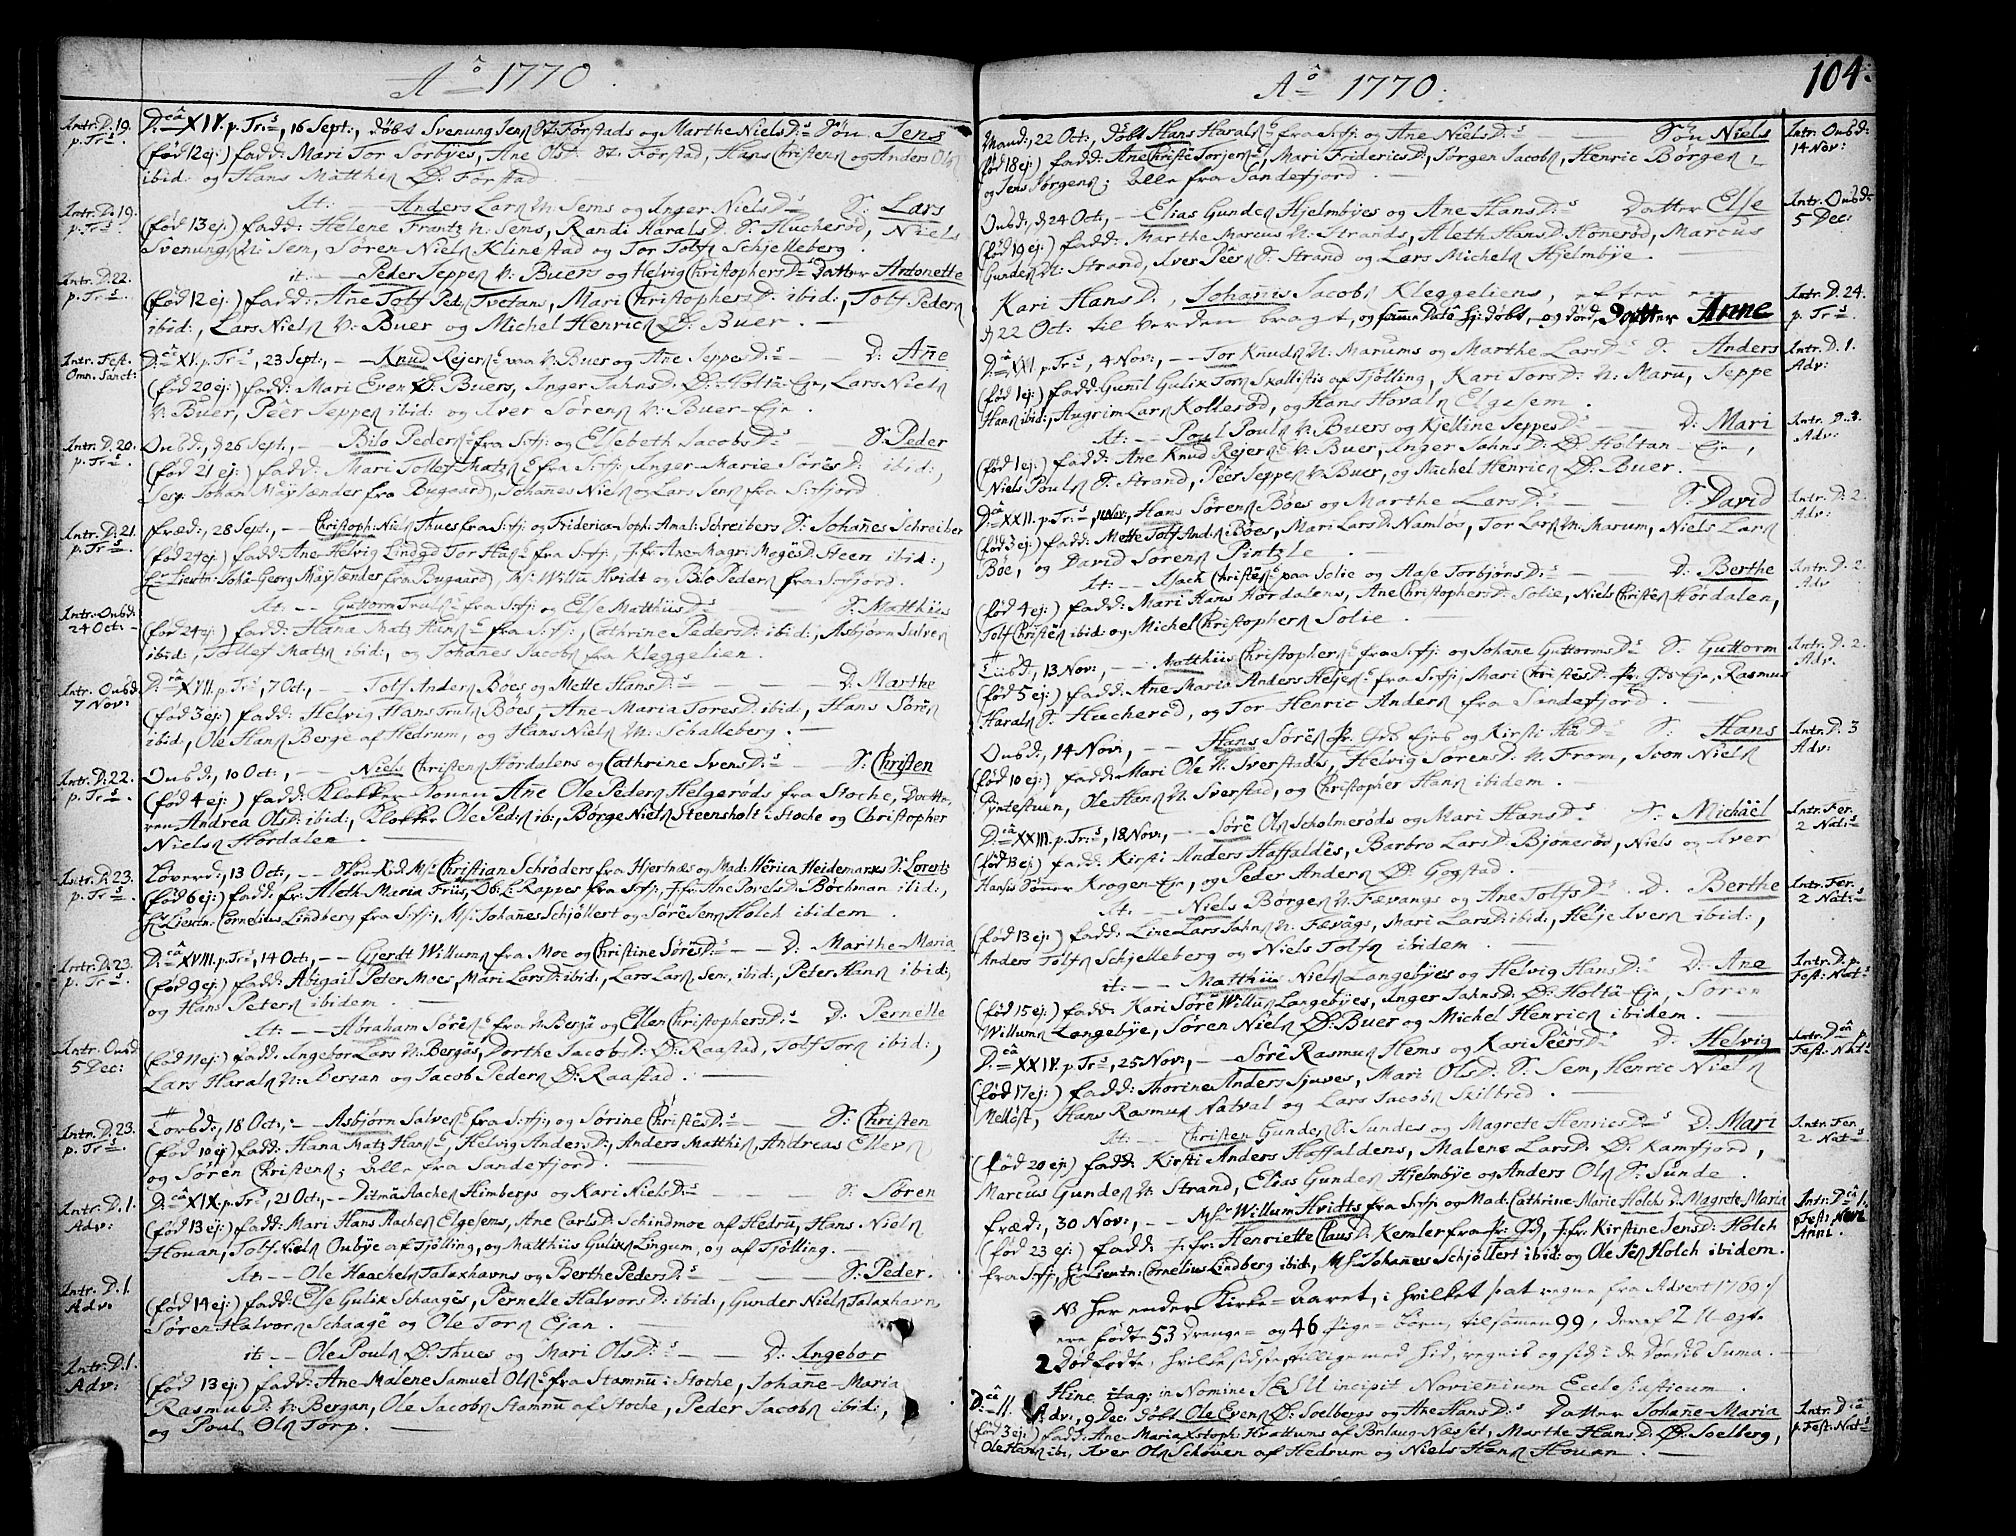 Aô 1770.
Intr. D. 19. p. Tr:s
D:câ XIV. p. Tr:s, 16 Sept:, døbt Svenung Jens Ø: Førstads og Marthe Niels D:s Søn Jens
(fød 12 ej:) fadd: Mari Tor Sørbyes, Ane Ols D: Ø: Førstad, Hans Christens og Anders Ols
ibid: og Hans Matthes Ø: Førstad
Intr. D. 19. p. Tr:s
It: — Anders Lars N: Sems og Inger Niels D:s S: Lars
(fød 13 ej:) fadd: Helene Frantz N: Sems, Randi Harals D: S: Hucherød, Niels
Svenungs N: Sem, Søren Niels Klinestad og Tor Tolfs Schjelleberg.
Intr. D. 22. p. Tr:s
it: — Peder Seppes N: Buers og Helvig Christophers D:s Datter Antonette
(fød 12 ej:) fadd: Ane Tolf Peds Tvetans, Mari Christophers D: ibid:, Tolf Peders
ibid:, Lars Niels N: Buer og Michel Henrics Ø: Buer. —
Intr. Fest. Omn. Sanct:
D:câ XV. p. Tr:s, 23 Sept:, — Knud Rejers paa N: Buer og Ane Seppes D:s — D: Ane
(fød 20 ej:) fadd: Mari Even Ø: Buers, Inger Jahns D: Ø: Holtâ-Eje, Lars Niels
N: Buer, Peer Seppes ibid: og Iver Sørens N: Buer-Eje.
Intr. D. 20. p. Tr:s
Onsd:, d 26 Sept:, — Bilo Peders fra S:fj: og Elsebeth Jacobs D:s — S: Peder
(fød 21 ej:) fadd: Mari Tollef Matz fra S:fj: Inger-Marie Søres D: ibid:,
Johan Maylænder fra Bugaard, Johanes Niels og Lars Jens fra S:fjord
Intr. D. 21. p. Tr:s
Fræd:, 28 Sept:, — Christoph: Niels Thues fra S:fj: og Friderica Soph: Amal: Schreibers S: Johañes Schreiber
(fød 24 ej:) fadd: Ane Helvig Lindgd Tor Hans fra S:fj:, Jfr: Ane Magr: Moges D: Steen ibid:,
Hr Lieutn: Johâ Georg Maylænder fra Bugaard, Ms: Willū Hvidt og Bilo Peders fra S:fjord.
Intr. Onsd: 24 Oct:
It: — Guttorm Truls fra S:fj: og Else Matthiis D:s — S: Matthiis
(fød 24 ej:) fadd: Hana Matz Hans fra S:fj:, Cathrine Peders D: ibid:, Asbjørn Sulves
ibid:, Tollef Matzs ibid:, og Johanes Jacobs fra Kleggelien.
Intr. Onsd: 7 Nov:
D:câ XVII. p. Tr:s, 7 Oct:, — Tolf Anders Bøes og Mette Hans D:s — D: Marthe
(fød 3 ej:) fadd: Helvig Hans Truls Bøes, Ane-Maria Tores D: ibid, Hans Sörens
ibid, Ole Hans Berge af Hedrum, og Hans Niels N: Schalleberg. —
Intr. D. 22. p. Tr:s
Onsd:, 10 Oct:, — Niels Christens Hørdalens og Cathrine Svens D:s — S: Christen
(fød 4 ej:) fadd: Klokker Ane Ole Peders Helgerøds fra Stoche, Datte-
ren Andrea Ols D: ibid:, Klokker Ole Peds ib:, Børge Niels Steensholt i Stoche og Christopher
Niels Hørdalen.
Intr. D. 23. p. Tr:s
Løverd:, 13 Oct:, — Ms: Christian Schrøders fra Hjertnæs og Mad: Hêrica Heidemarks S: Lorentz
(fød 6 ej:) fadd: Fr: Aleth Maria Friis, Ob: L: Kappes fra S:fj:, Jfr: Ane Sovels D: Børchman ibid:,
Hr Lieutn: Cornelius Lindberg fra S:fj:, Ms: Johañes Schjøllert og Sørê Jens Holch ibidem.
Intr. D. 23. p. Tr:s
D:câ XVIII. p. Tr:s, 14 Oct:, — Gjerdt Willums fra Moe og Christine Søres D:s — D: Marthe-Maria
(fød 9 ej:) fadd: Abigail Peter Moes, Mari Lars D: ibid:, Lars Lars Sem, ibid:, Peter Hans ibid:,
og Hans Peters ibidem. —
Intr. Onsd: 5 Dec:
It: — Abraham Sørês fra N: Bergâ og Ellen Christophers D:s D: Pernelle
(fød 11 ej:) fadd: Ingebor Lars N: Bergâs, Dorthe Jacobs D: Ø: Raastad, Tolf Tors ibid:,
Lars Harals N: Bersan og Jacob Peders Ø: Raastad. —
Intr. D. 23. p. Tr:s
Torsd:, 18 Oct:, — Asbjørn Salves fra S:fj: og Sørine Christês D:s — S: Christen
(fød 10 ej:) fadd: Hana Matz Hans, Helvig Anders D:, Anders Matthis, Andreas Ellevs
og Søren Christens; Alle fra Sandefjord. —
Intr. D. 1. Adv:
D:câ XIX. p. Tr:s, 21 Oct:, — Ditmâ Aachens Himbergs og Kari Niels D:s — S: Søren
(fød 13 ej:) fadd: Mari Hans Aachens Elgesens, Ane Carls D: Schindmoe af Hedrū, Hans Niels
Houan, Tolf Niels Oubye af Tjølling, og Matthiis Guliks Lingum, og af Tjølling. —
Intr. D. 1. Adv:
It: — Ole Haachens Talaxhavns og Berthe Peders D:s — S: Peder.
(fød 14 ej:) fadd: Else Gulix Schaages, Pernelle Halvors D: ibid:, Gunder Niels Talaxhavn,
Søren Halvors Schaage og Ole Tors Ejan. —
Intr. D. 1. Adv:
it: — Ole Pouls Ø: Thues og Mari Ols D:s — D: Angebor
(fød 13 ej:) fadd: Ane-Malene Samuel Ols fra Stamnū i Stoche, Johañe-Maria
Rasmus D: N: Bergan, Ole Jacobs Stamnū af Stoche, Peder Jacobs ibid:,
og Poul Ols Torp. —
Aô 1770.
104.
Mand:, 22 Oct:, døbt Hans Harals fra S:fj: og Ane Niels D:s — Søn Niels
Intr. Onsd: 14 Nov:
(fød 18 ej:) fadd: Ane Christê Torjers, Mari Friderics D:, Jørgen Jacobs, Henric Børges,
og Jens Jørgens; Alle fra Sandefjord. —
Onsd:, d 24 Oct:, — Elias Gunders Hjelmbyes og Ane Hans D:s Datter Else
Intr. Onsd: 5 Dec:
(fød 19 ej:) fadd: Marthe Marcus N: Strands, Aleth Hans D: Hønerød, Marcus
Gunders N: Strand, Iver Peers S: Strand og Lars Michels Hjelmbye. —
Kari Hans D:, Johanis Jacobs Kleggeliens,
Intr. D. 24. p. Tr:s
d 22 Oct: til Verden bragt, og samme Dato hj: døbt, og død, Datter Anne
D:câ XXI. p. Tr:s, 4 Nov:, — Tor Knuds N: Marums og Marthe Lars D:s S: Anders
Intr. D. 1. Adv:
(fød 1 ej:) fadd: Gunil Gulix Tors Skallistis af Tjølling, Kari Tors D: N: Marū, Seppe
Hans ibid:, Augrim Lars Kollerød, og Hans Hovals Elgesem.
It: — Poul Pouls N: Buers og Kjelline Seppes D:s — D: Mari
Intr. D. 3. Adv:
(fød 1 ej:) fadd: Ane Knud Rejers N: Buer, Inger Jahns D: Ø: Holtan-Eje,
Niels Pouls S: Strand, Peer Seppes N: Buer, og Michel Henrics Ø: Buer. —
D:câ XXII. p. Tr:s, 11 Nov:, Hans Sørens Bøes og Marthe Lars D:s — S: David
Intr. D. 2. Adv:
(fød 3 ej:) fadd: Mette Tolf Anders Bøes, Mari Lars D: Namløs, Tor Lars N: Marum, Niels Lars
Bøe, og David Sørens Pintzle. —
It: — Isach Christês paa Solie og Aase Torbjøns D:s — D: Berthe
Intr. D. 2. Adv
(fød 4 ej:) fadd: Mari Hans Hørdalens, Ane Christophers D: Solie, Niels Christês Hørdalen,
Tolf Christês ibid: og Michel Christophers Solie. —
Tiisd:, 13 Nov:, — Matthiis Christophers fra S:fj: og Johañe Guttorms D:s S: Guttorm
Intr. D. 2. Adv.
(fød 5 ej:) fadd: Ane Maria Anders Heljes fra S:fj:, Mari Christês D: Pr: Gds Eje, Rasmus
Harals S: Hucherød, og Tor Henric Anders fra Sandefjord. —
Onsd:, 14 Nov:, — Hans Sørês Pr: Gds Ejes og Kirsti Hâs D:s S: Hans
Intr. D. 3 Adv:
(fød 10 ej:) fadd: Mari Ole N: Sverstads, Helvig Sørens D: N: From, Svon Niels
Pyntestuen, Ole Hans N: Sverstad, og Christopher Hans ibidem.
D:câ XXIII. p. Tr:s, 18 Nov:, — Sørê Ols Scholmerøds og Mari Hans D:s S: Michâel
Intr. Fer. 2 Nat:s
(fød 13 ej:) fadd: Kirsti Anders Haffaldês, Barbro Lars D: Bjønerød, Niels og Iver
Krogen-Eje, og Peder Anders Ø: Gogstad.
It: — Niels Børges N: Fævangs og Ane Tolfs D:s D: Berthe
Intr. Fer. 2 Nat:s
(fød 13 ej:) fadd: Line Lars Jahns N: Fævâgs, Mari Lars D: ibid:, Helje Ivers ibid:,
Anders Tolfs Schjelleberg og Niels Tolfs ibidem. —
it: — Matthiis Niels Langebyes og Helvig Hans D:s D: Ane
Intr. D. p. Fest: Nat:s
(fød 15 ej:) fadd: Kari Sørê Willums Langebyes, Inger Jahns D: Ø: Holtâ-Eje, Søren
Willums Langebye, Søren Niels Ø: Buer og Michel Henrics ibidem. —
D:câ XXIV. p. Tr:s, 25 Nov:, — Sørê Rasmus Hems og Kari Pêers D:s D: Helvig
Intr. D:câ p. Fest: Nat:s
(fød 17 ej:) fadd: Thorine Anders Sjuves, Mari Ols D: S: Sem, Henric Niels
Melløst, Hans Rasmus Natval og Lars Jacobs Skilbred.
It: — Christen Gunders S: Sundes og Magrete Henrics D:s D: Mari
Intr. Fer. 2 Nat:s
(fød 20 ej:) fadd: Kirsti Anders Haffaldens, Malene Lars D: Ø: Kamfjord,
Marcus Gunders N: Strand, Elias Gunders Hjelmbye og Anders Ols S: Sunde.
Fræd:, 30 Nov:, — Ms:r Willum Hvidts fra S:fj: og Mad: Cathrine-Marie Holchs D: Magrete Maria
Intr. D:câ 1. p Fest: Novi Anni.
(fød 23 ej:) fadd: Jfr: Henriette Claus D: Kemler fra Pr: Gd, Jfr: Kirstine Jens D: Holch
fra S:fj:, Hr Lieutn: Cornelius Lindberg ibid:, Ms: Johañes Schjøllert ibid: og Ole Jês Holch ibidem.
NB her ender Kirke=Aaret, i hvilket (at regne fra Advent 1769)
ere fødte 53 Drenge= og 46 Pige=Børn, tilsâmen 99, deraf 2 Uægte
2 Dødfødte, hvilke sidste tillige med hid, regnis og sid i de Dødis Suma. —
Hinc itaq: in Nomine JESU incipit Novienium Ecclesiasticum
D:câ II. Adv:, 9 Dec: døbt Ole Evens Ø: Soelbergs og Ane Hans D:s Datter Johañe-Maria
Intr. D:câ p. Fest: Nat:s
(fød 3 ej:) fadd: Ane Maria Xstoph: Hvattums af Brúlaug-Næsset, Marthe Hans D: Ø: Soelberg,
Ole Hans ib:, Iver Ols Schouen af Hedrum og Niels Hans Houan. —